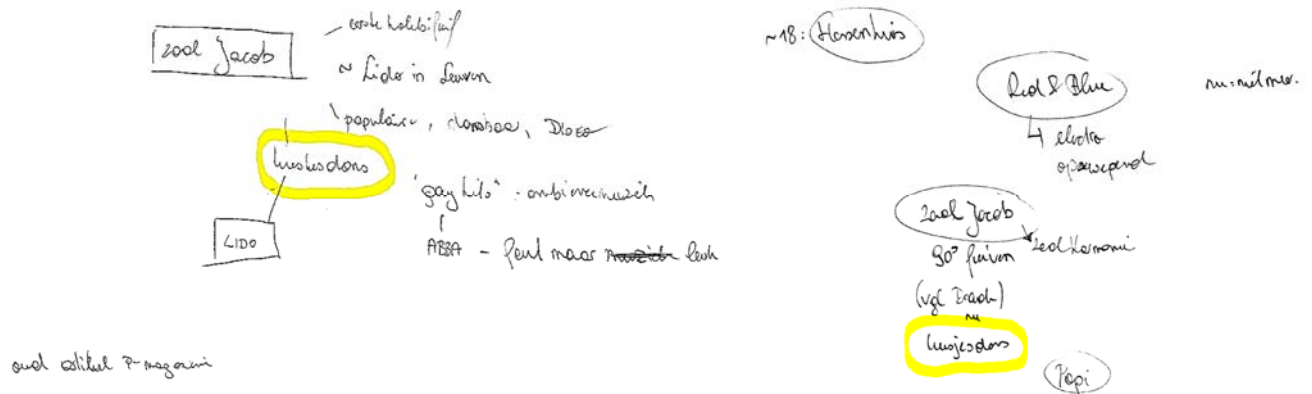 zaal Jacob
eerste holebifuif
~ Lido in Leuven
populaire, dansbaar, Disco
kusjesdans
LIDO
"gay hits" : ambiancemuziek
ABBA - fout maar leuk
oud artikel P-magazine
~18: Hessenhuis
Red & Blue
↳ electro
opzwepend
zaal Jacob
zaal Harmonie
90° fuiven
(vgl
nu
kusjesdans
Popi